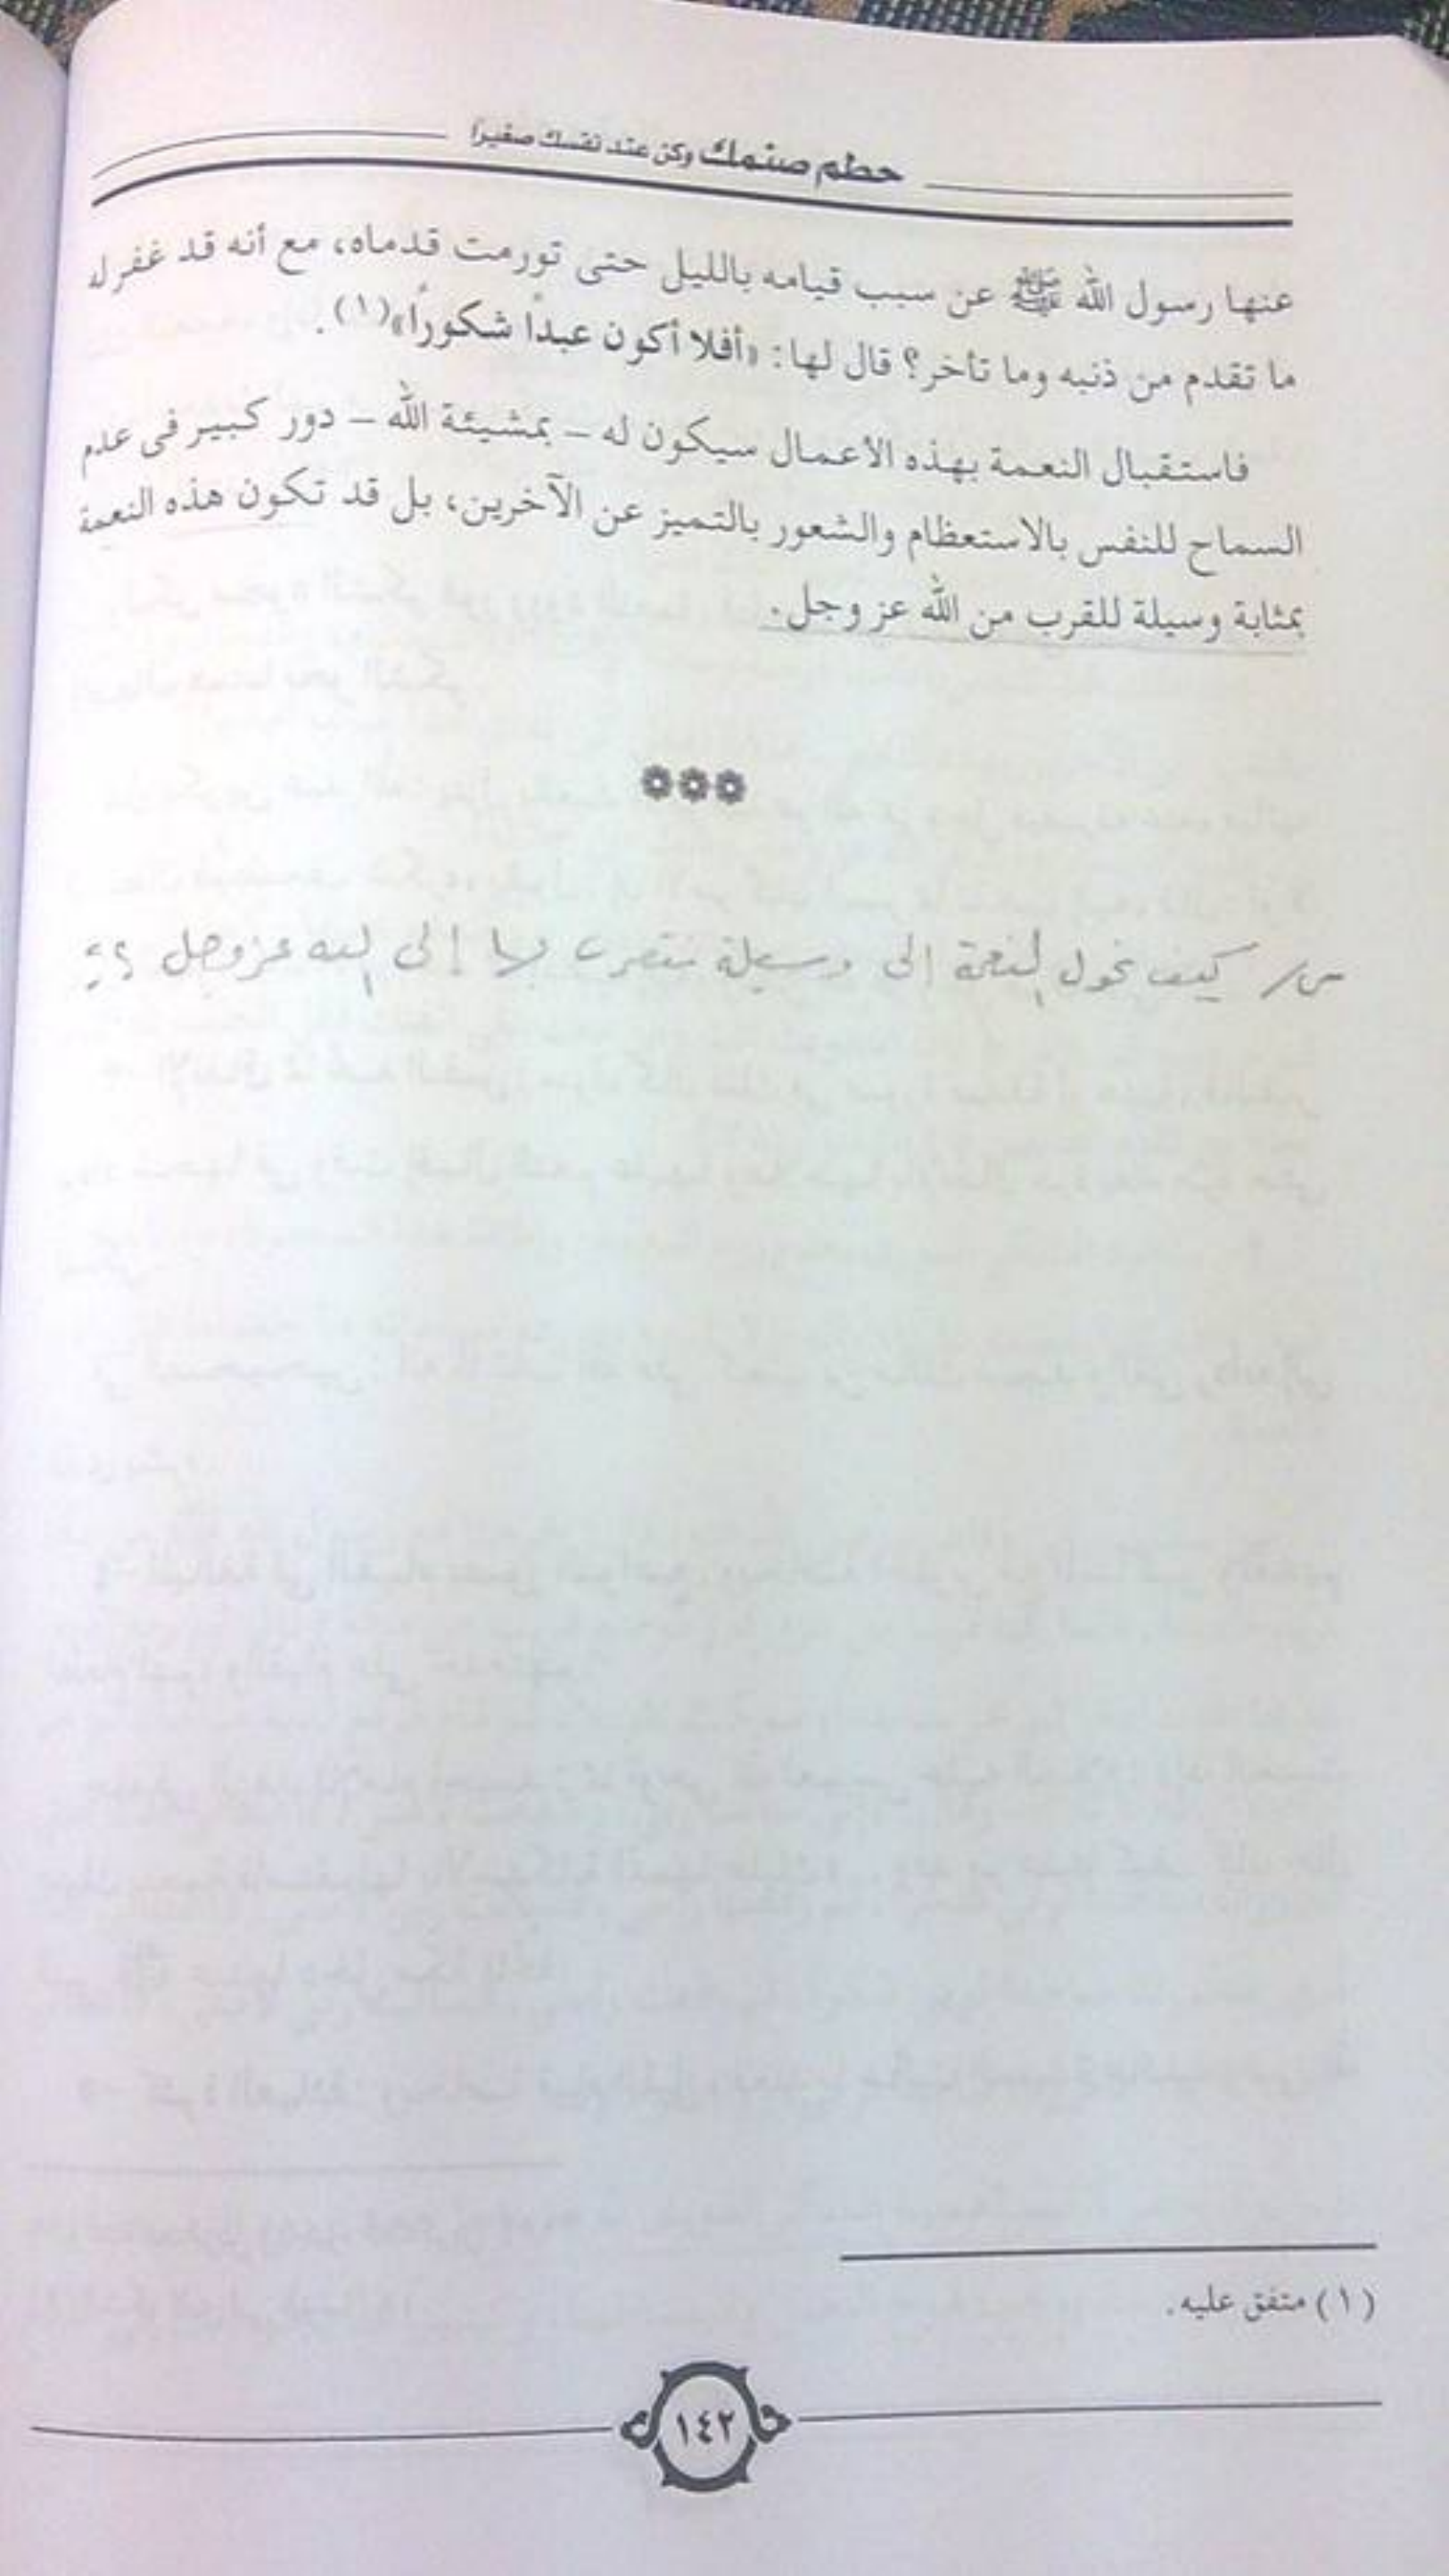 حطم صنمك وكن عند نفسك صغيرًا
عنها رسول الله ﷺ عن سبب قيامه بالليل حتى تورمت قدماه، مع أنه قد غفر له
ما تقدم من ذنبه وما تأخر؟ قال لها: «أفلا أكون عبداً شكوراً»(١).
فاستقبال النعمة بهذه الأعمال سيكون له – بمشيئة الله – دور كبير فى عدم
السماح للنفس بالاستعظام والشعور بالتميز عن الآخرين، بل قد تكون هذه النعمة
بمثابة وسيلة للقرب من الله عز وجل.
س/ كيف نحول النعمة إلى وسيلة نتقرب بها إلى الله عز وجل ؟؟
(١) متفق عليه.
١٤٢